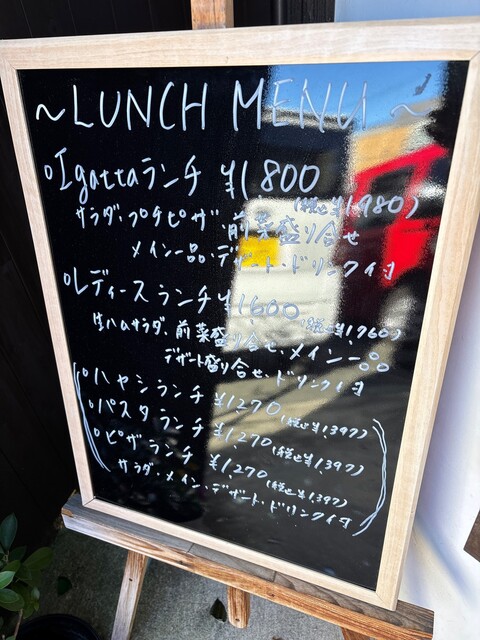 ~LUNCH MENU~
○Igattaランチ ¥1800
(税込¥1,980)
サラダ、プチピザ、前菜盛り合せ
メイン一品、デザート、ドリンク付
○レディースランチ ¥1600
(税込¥1,760)
生ハムサラダ、前菜盛り合せ、メイン一品
デザート盛り合せ、ドリンク付
○ハヤシランチ ¥1270(税込¥1,397)
○パスタランチ ¥1,270(税込¥1,397)
○ピザランチ ¥1,270(税込¥1,397)
サラダ・メイン・デザート・ドリンク付